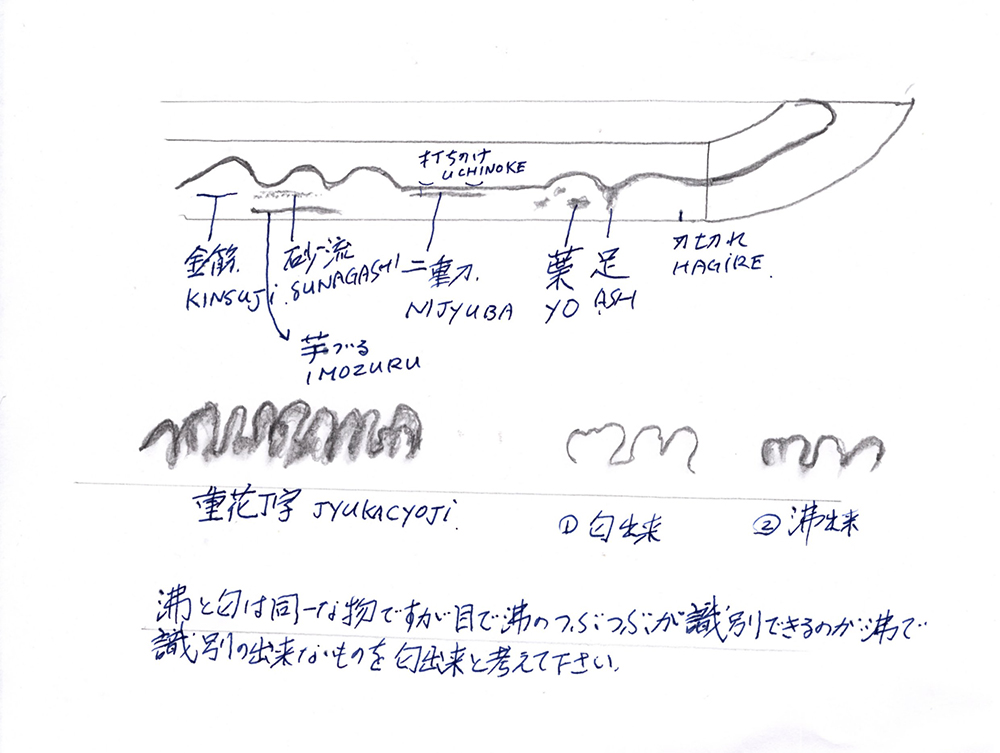 打ちのけ
UCHINOKE
金筋.
KINSUJI.
砂流
SUNAGASHI
二重刃.
NIJYUBA
葉
YO
足
ASH
刃切れ
HAGIRE.
芋づる
IMOZURU
重花丁字 JYUKACYOJI.
①匂出来
②沸出来
沸と匂は同一な物ですが目で沸のつぶつぶが識別できるのが沸で
識別の出来ないものを匂出来と考えて下さい.